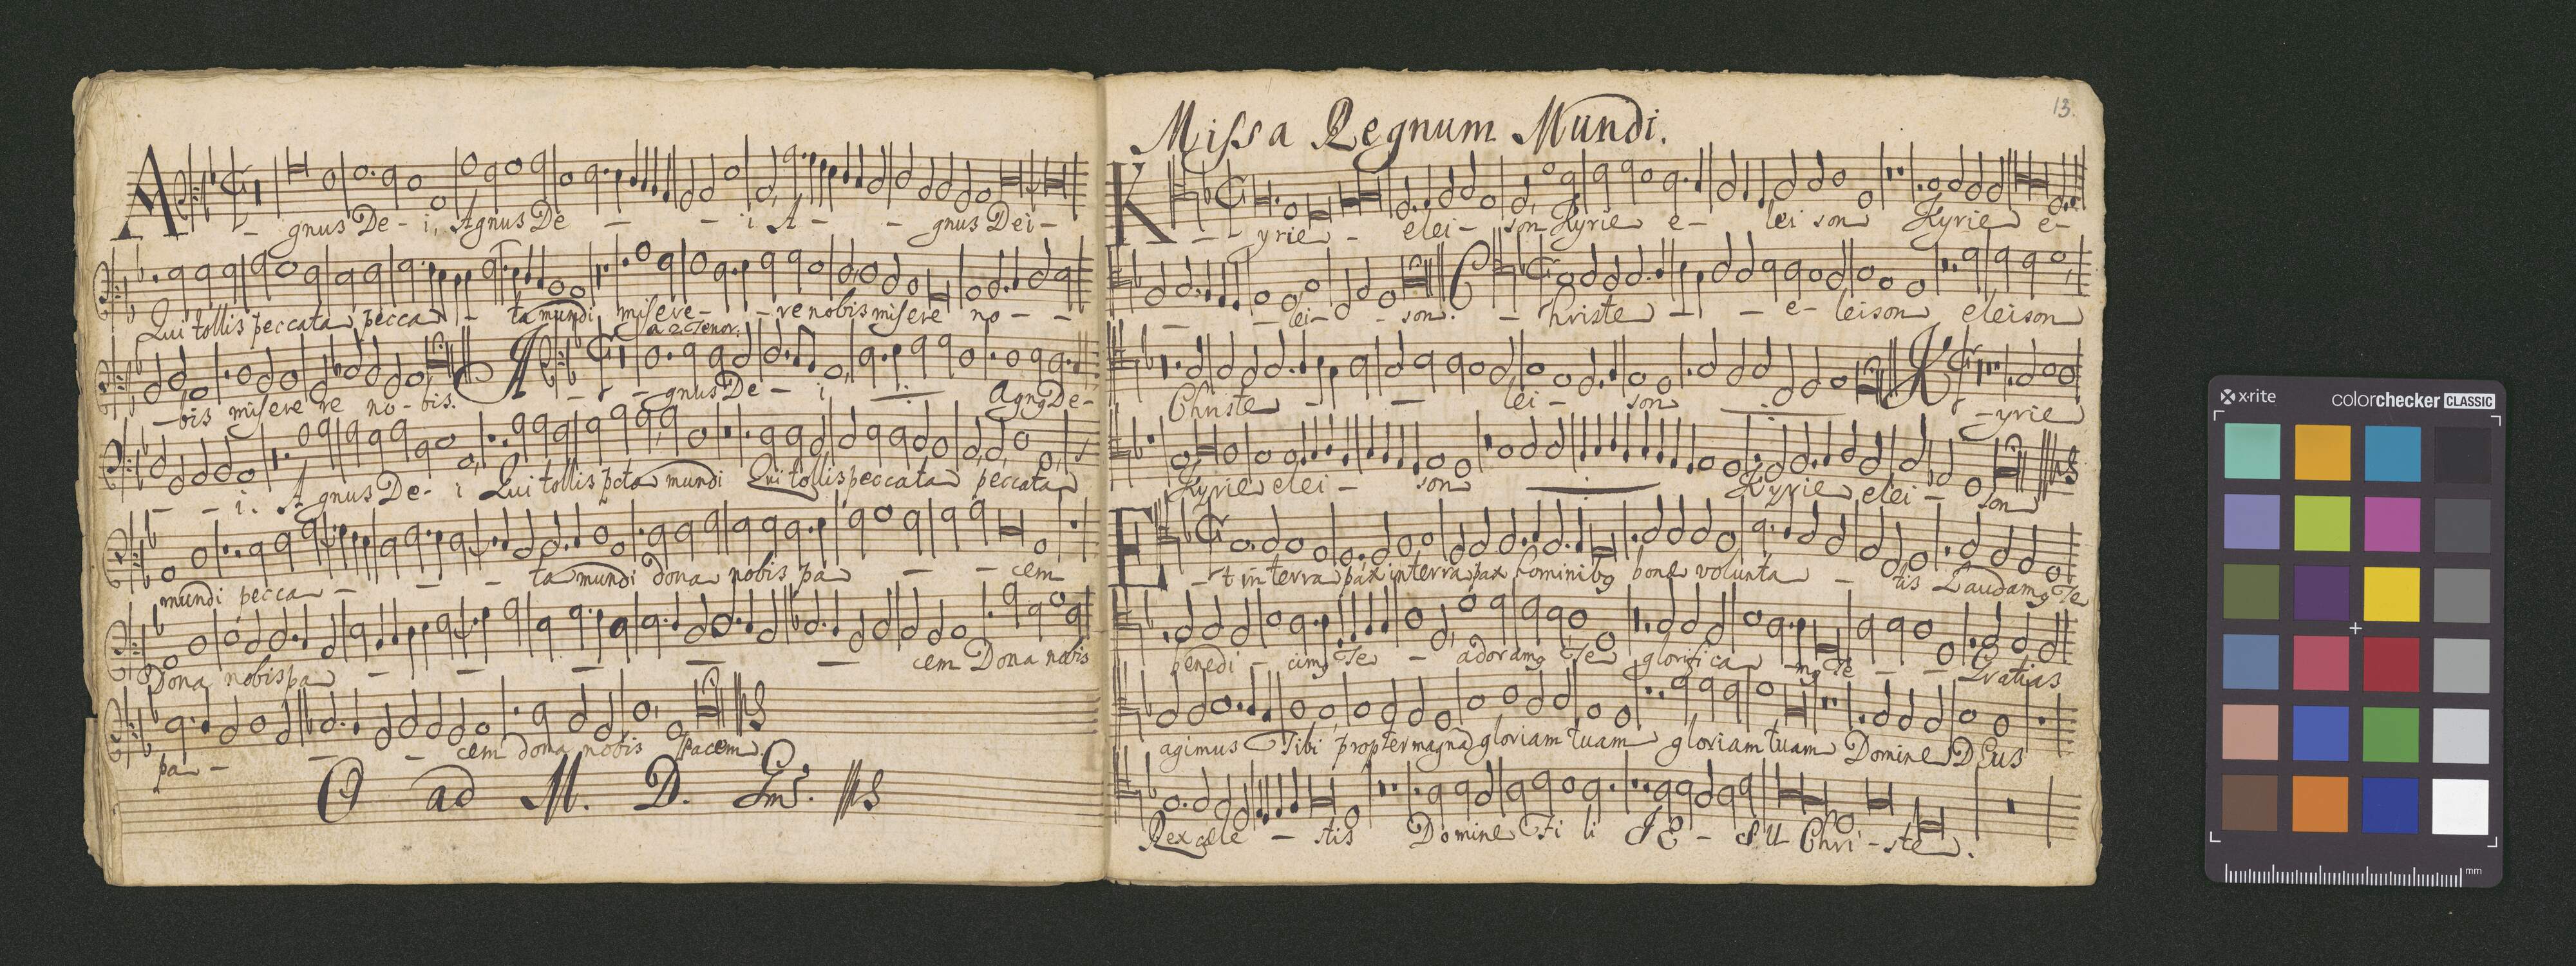 A - gnus De - i, Agnus De - - - i A - - gnus Dei -
Qui tollis peccata pecca - ta mundi misere - - re nobis misere no - -
a 2 Tenor.
- bis misere re no - bis. A - - gnus De - i Agng De -
- - i. Agnus De - i Qui tollis pcta mundi Qui tollis peccata peccata
mundi pecca - - - - ta mundi dona nobis pa - - cem
Dona nobis pa - - - - - cem Dona nobis
pa - - - cem dona nobis Pacem.
O ad M. D.
13.
Missa Regnum Mundi.
K - - - yrie - elei - son Kyrie e - lei son Kyrie e -
- - lei - o - son. C - hriste - - e - leison eleison
Christe - - lei - son K - yrie
Kyrie elei - son Kyrie elei - son
E - t in terra pax in terra pax hominibg bone volunta - tis Laudamg Te
benedi - cimg Te - adoramg Te glorifica - mg Te - - Gratias
agimus Tibi propter magnã gloriam tuam gloriam tuam Domine DEus
Rex cæle - stis Domine Fi li JE - SU Chri - ste.
x·rite
colorchecker CLASSIC
mm